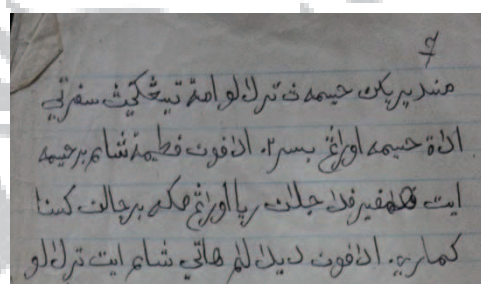 منديريكن خيمه دن ترلالو امة تيڠكيڽ سفرتي
اداة خيمه اورڠ بسر٢. ادفون فطيمة شام برخيمه
ايت همفير فد جالن راي اورڠ مكه برجالن كسنا
كماري. ادفون ديدالم هاتي شام ايت ترلالو